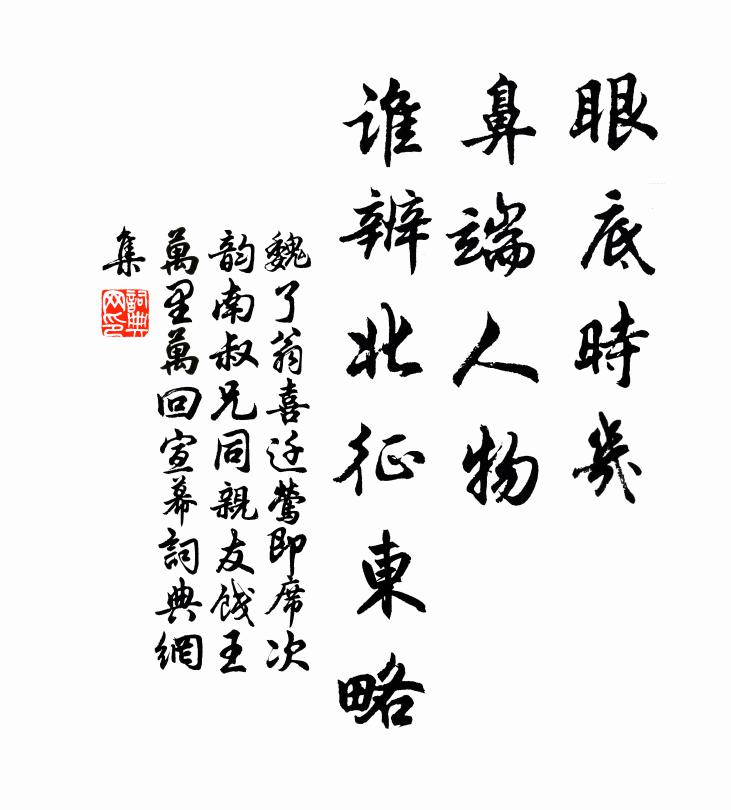 眼底時幾
鼻端人物
誰辨北征東略
魏了翁喜迁鶯即席次
韵南叔兄同親友餞王
萬里萬回宣幕詞典網
集
詞典
网印